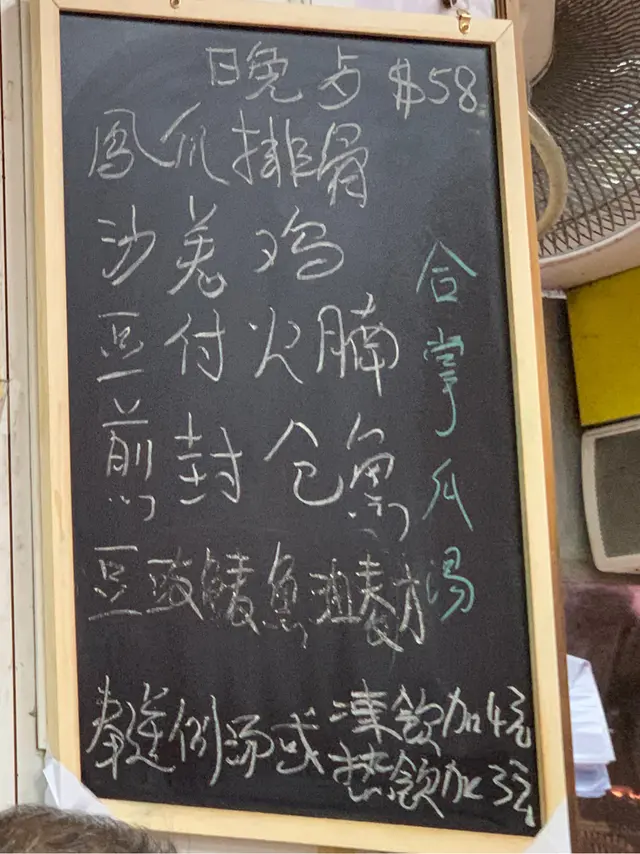 晚市 $58
鳳爪排骨
沙羌鸡
豆付火腩
煎封仓魚
豆豉鯪魚油麦
合掌瓜汤
奉送例汤或凍飲加4元
热飲加3元